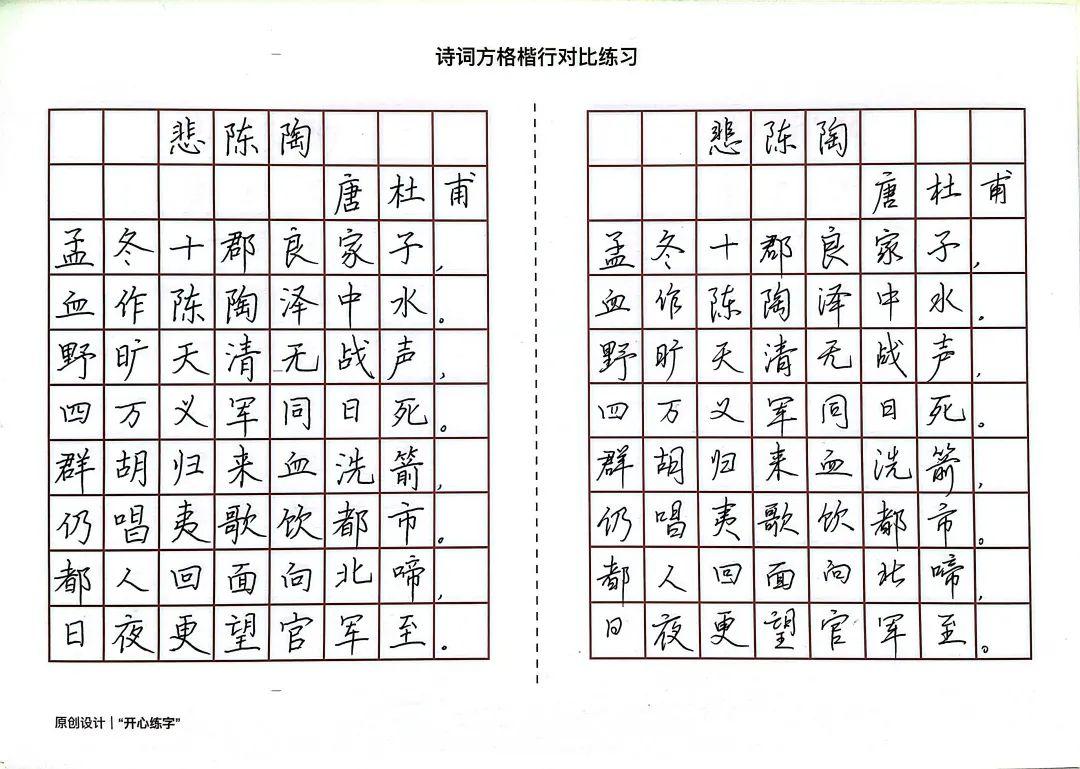 诗词方格楷行对比练习
悲陈陶
唐杜甫
孟冬十郡良家子，
血作陈陶泽中水。
野旷天清无战声，
四万义军同日死。
群胡归来血洗箭，
仍唱夷歌饮都市。
都人回面向北啼，
日夜更望官军至。
悲陈陶
唐杜甫
孟冬十郡良家子，
血作陈陶泽中水。
野旷天清无战声，
四万义军同日死。
群胡归来血洗箭，
仍唱夷歌饮都市。
都人回面向北啼，
日夜更望官军至。
原创设计｜“开心练字”